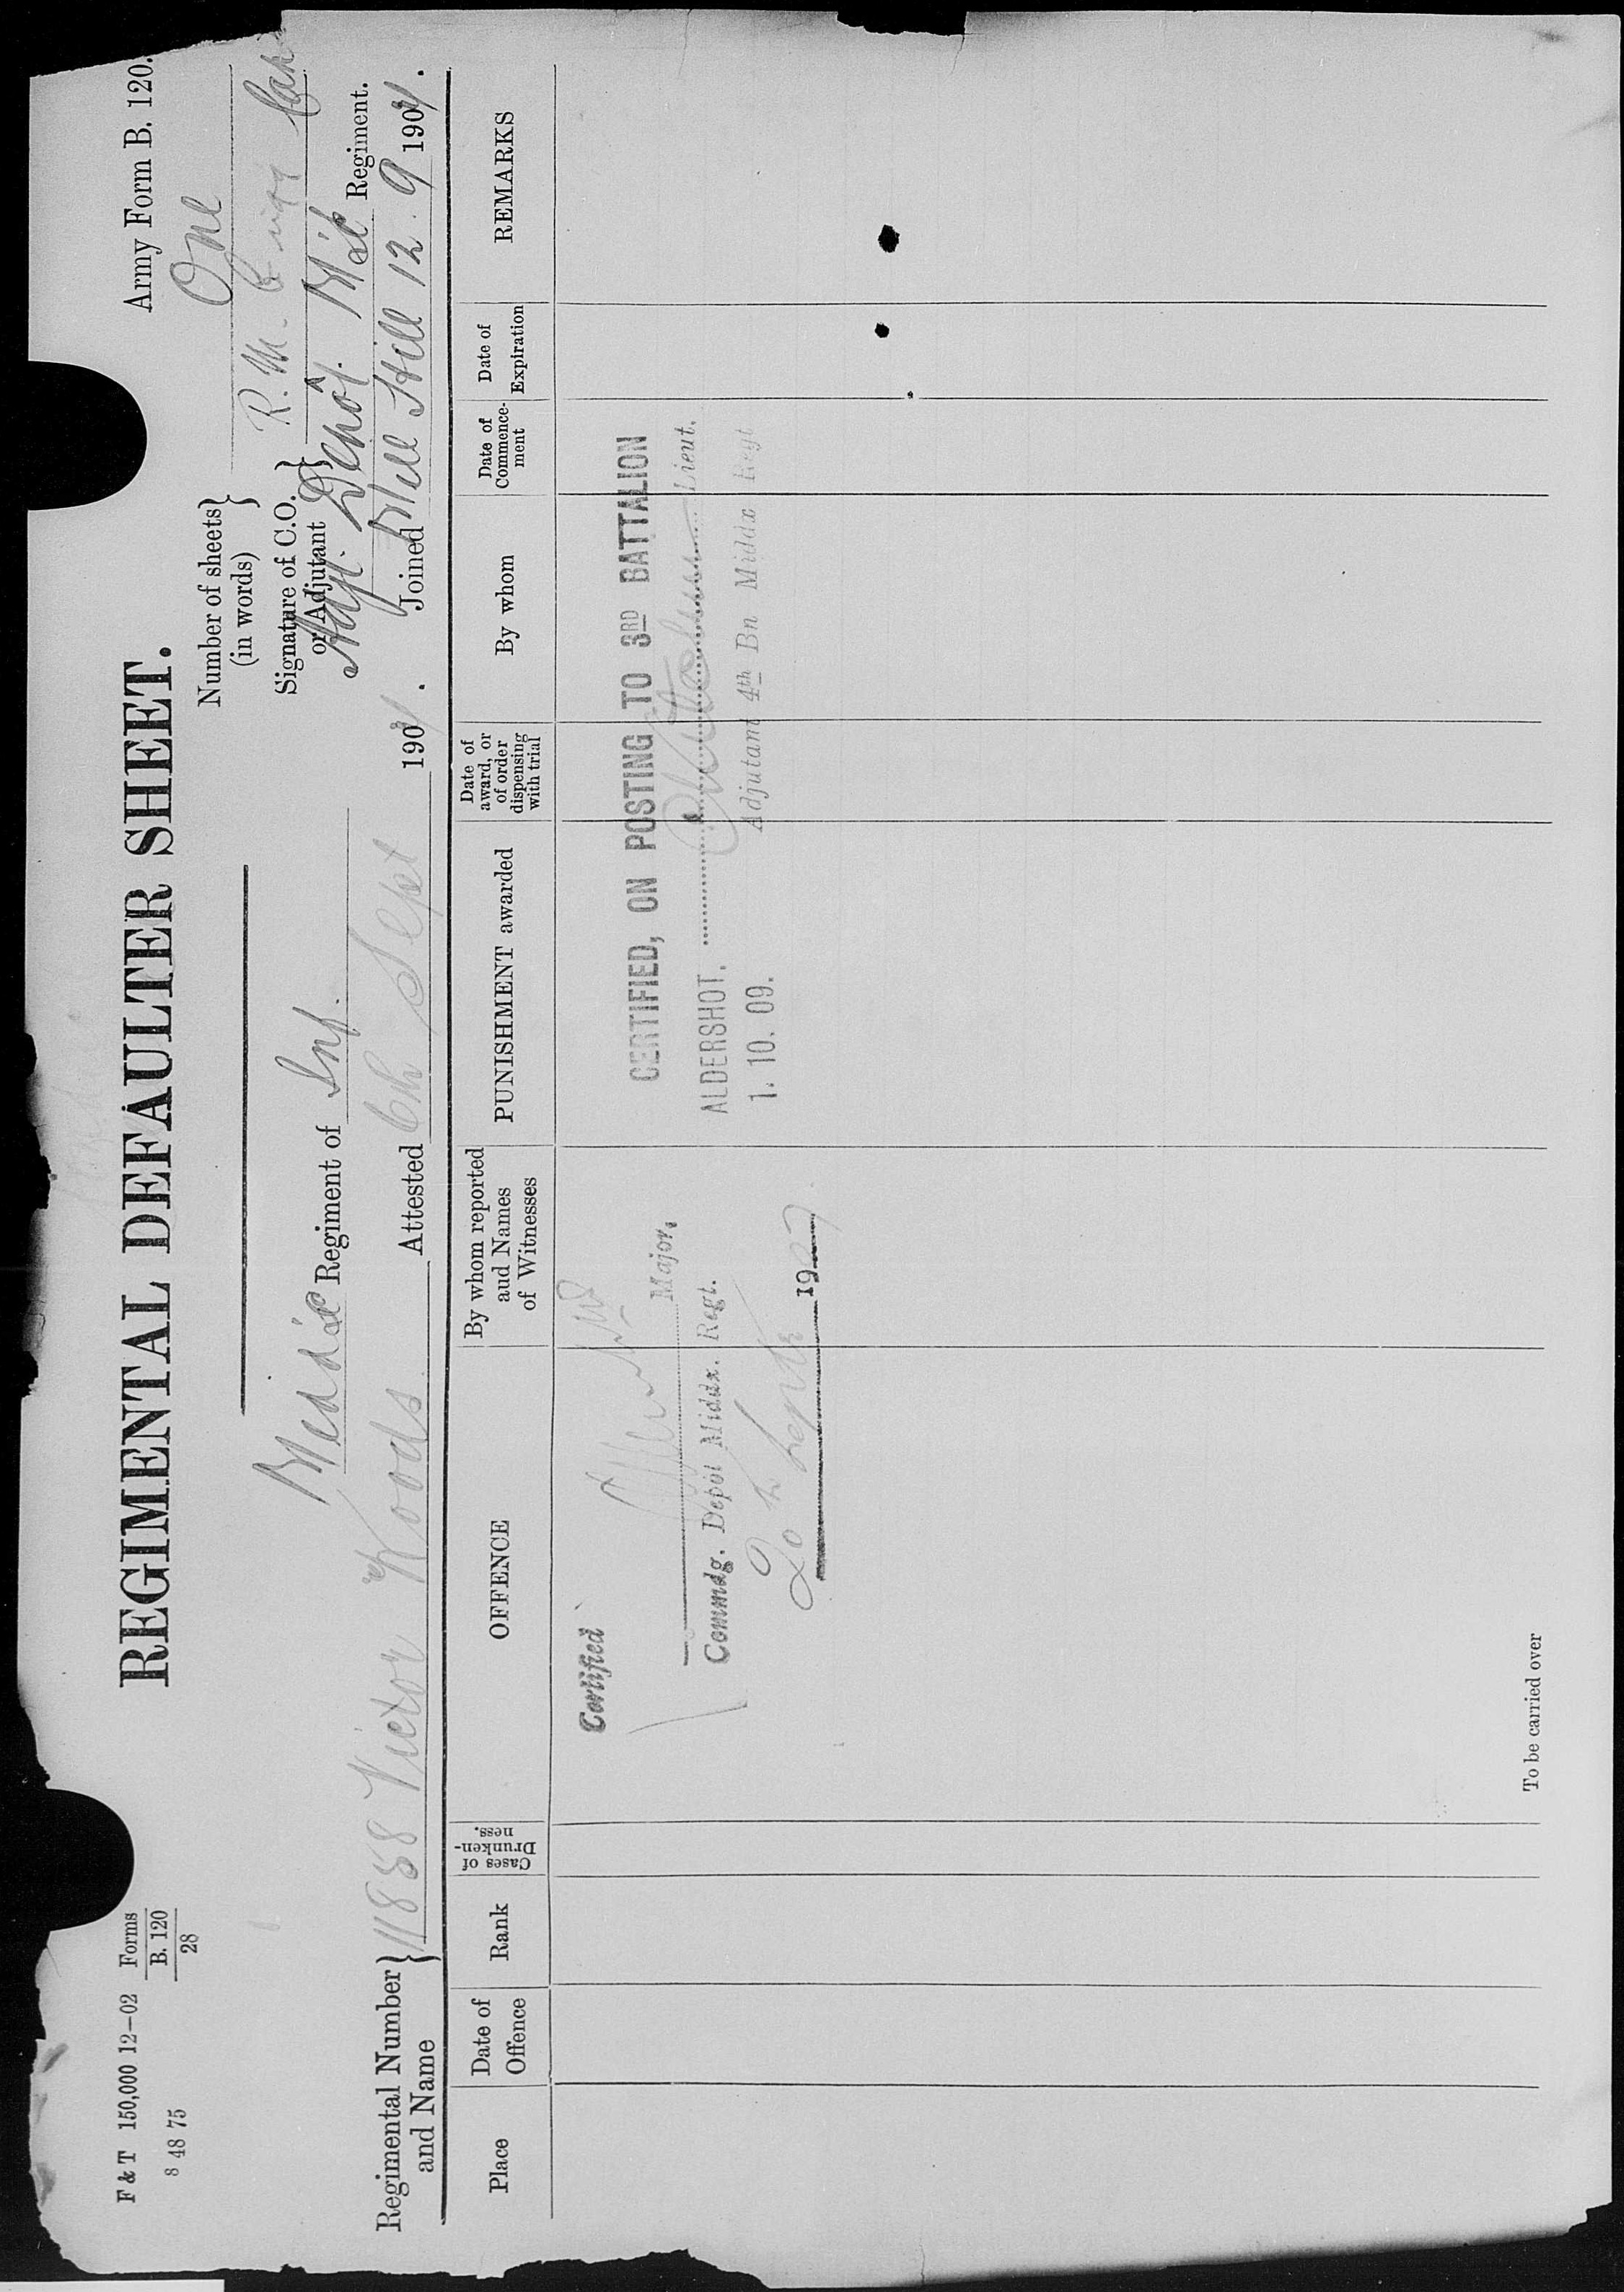 F & T 150,000 12–02 Forms
B. 120
28
8 48 75
Army Form B. 120.
REGIMENTAL DEFAULTER SHEET.
Number of sheets (in words) } One
Signature of C.O. or Adjutant } R. M.
Adjt. Depôt. M'dx Regiment.
Midd'x Regiment of Inf.
Regimental Number and Name } 11888 Victor Woods Attested 6th Sept 1904. Joined Mill Hill 12. 9 1904.
Place
Date of Offence
Rank
Cases of Drunkenness.
OFFENCE
By whom reported and Names of Witnesses
PUNISHMENT awarded
Date of award, or of order dispensing with trial
By whom
Date of Commencement
Date of Expiration
REMARKS
Certified
Major,
Commdg. Depôt Middx. Regt.
1907
CERTIFIED, ON POSTING TO 3RD BATTALION
ALDERSHOT. Lieut.
1. 10. 09. Adjutant 4th Bn Middx Regt
To be carried over